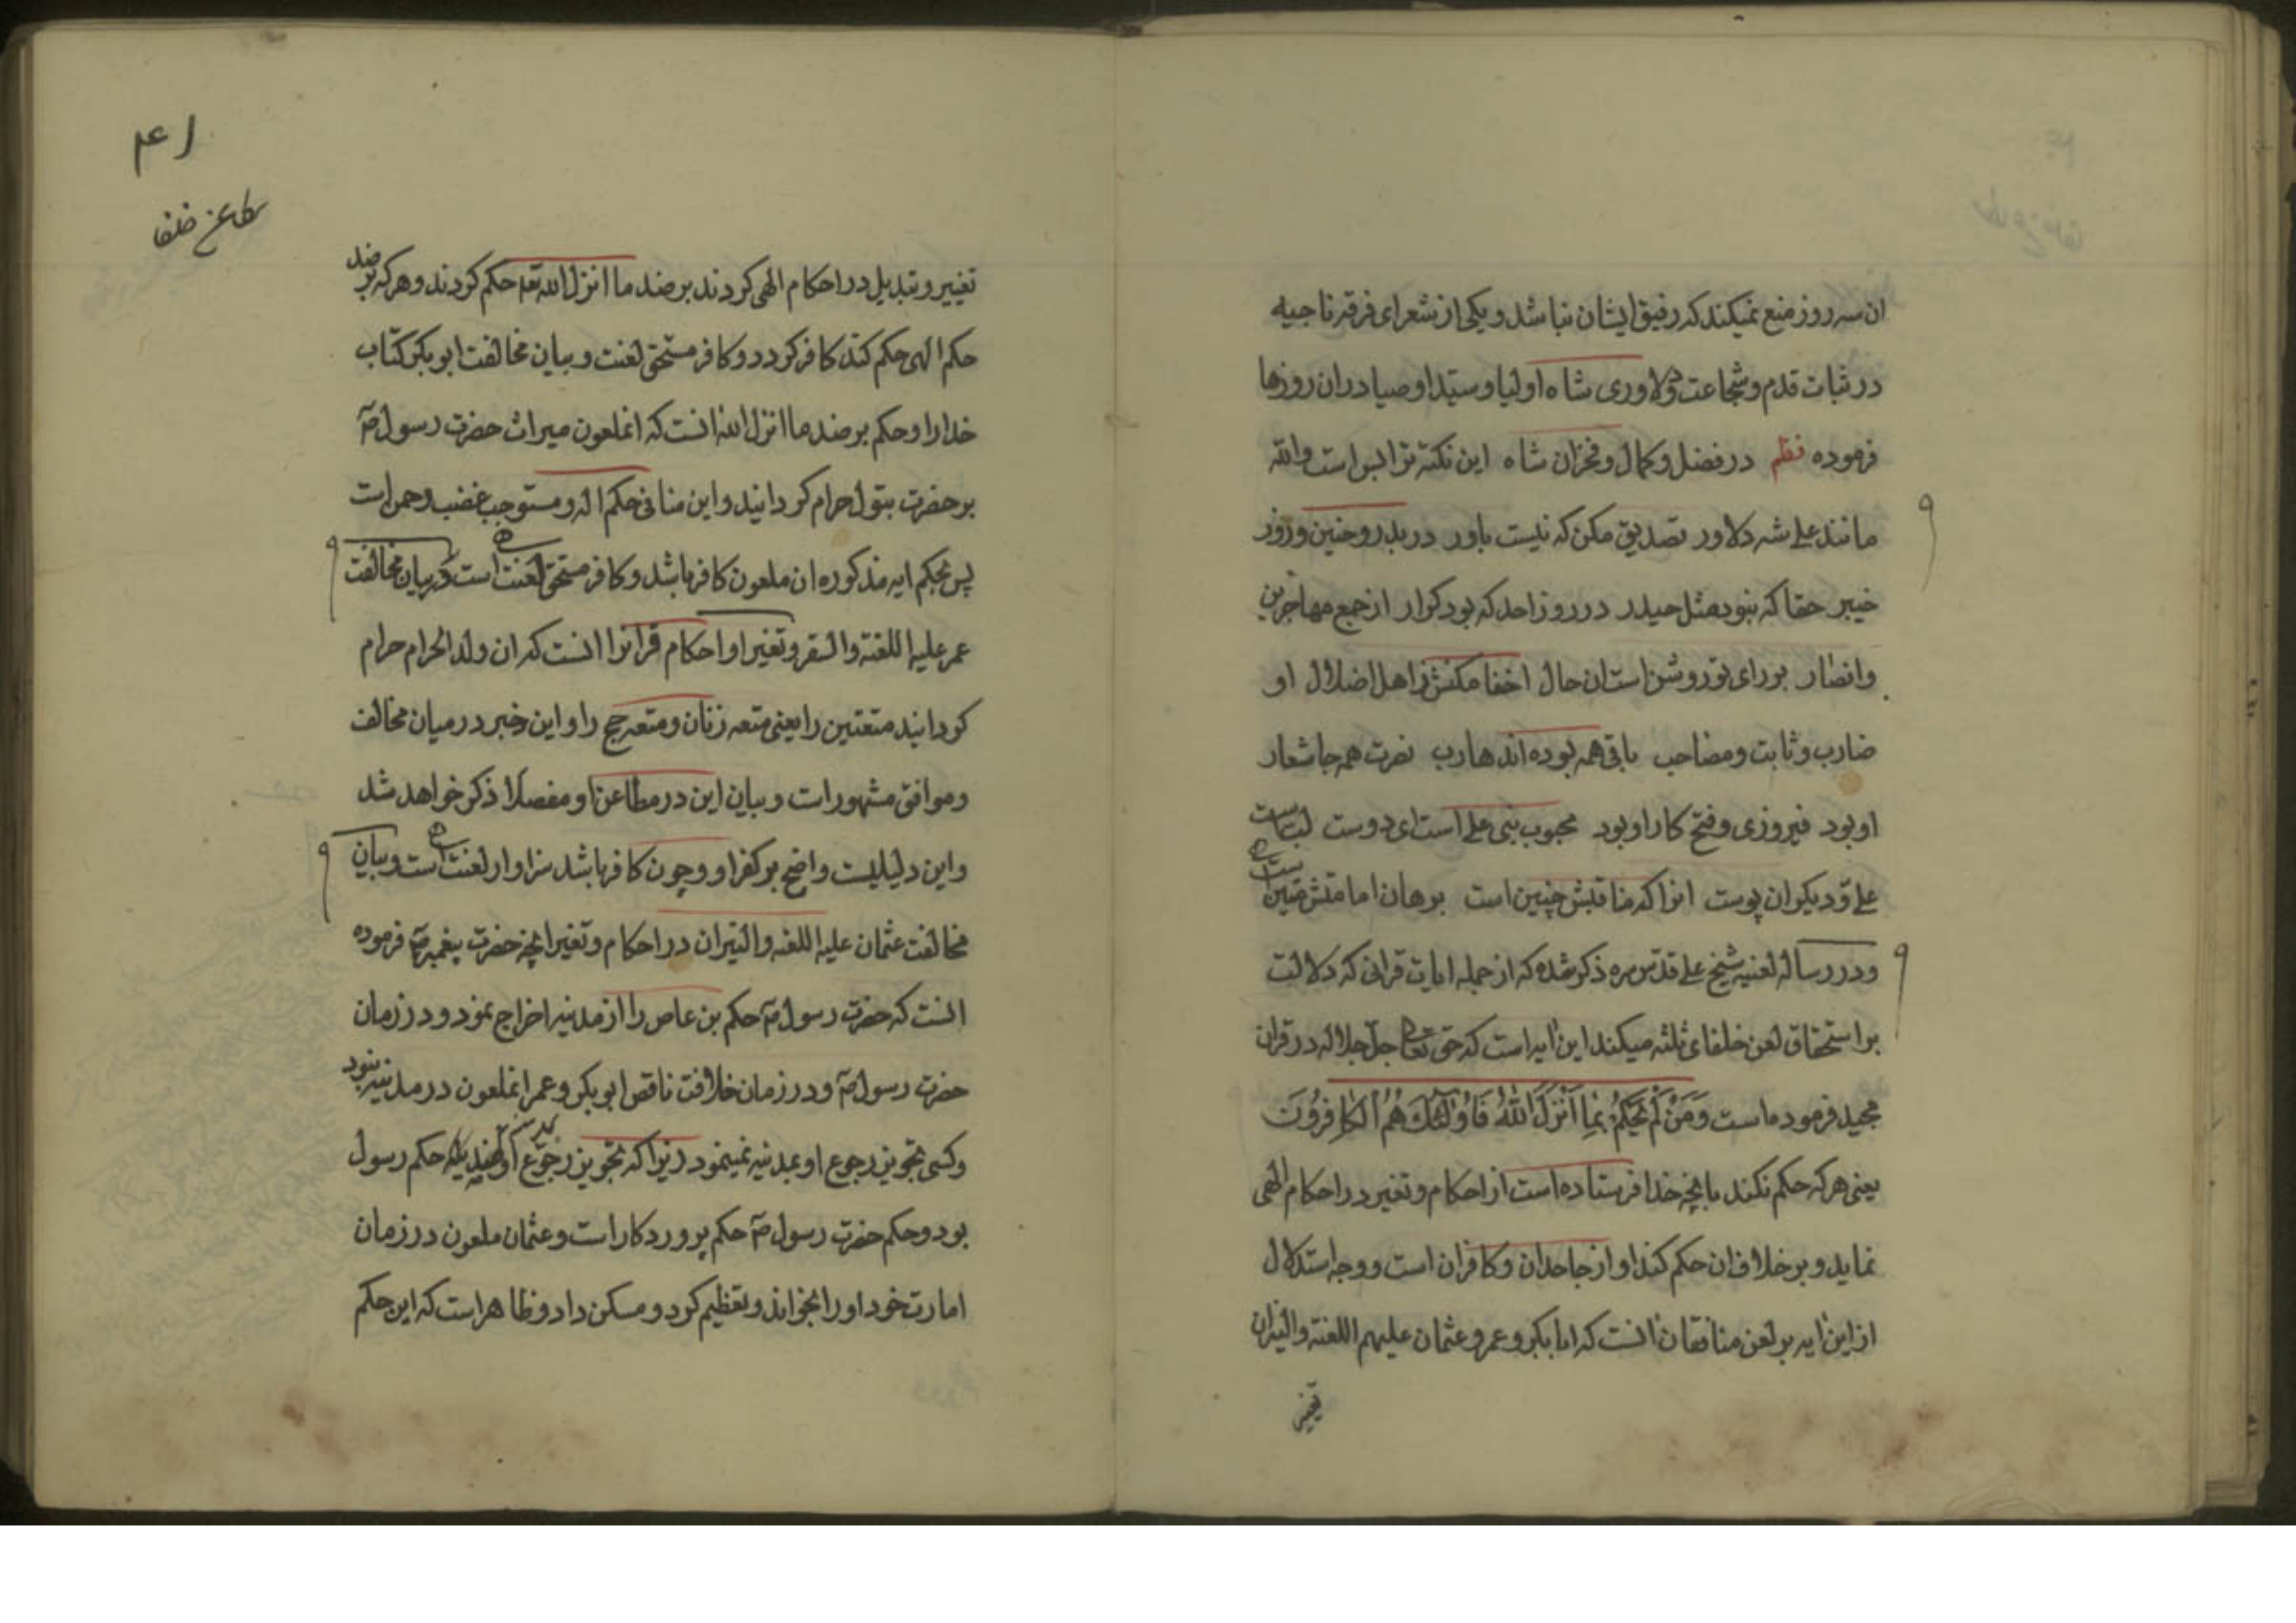 ان سه روز منع نمیکند که رفیق ایشان نباشد و یکی از شعرای فرقه ناجیه
در ثبات قدم و شجاعت و دلاوری شاه اولیا و سید اوصیا در ان روزها
فرموده نظم در فضل و کمال و فخر ان شاه این نکته ترا بس است والله
مانند علی شه دلاور تصدیق مکن که نیست باور در بدر و حنین و روز
خیبر حقا که نبود مثل حیدر در روز احد که بود کرار از جمع مهاجرین
وانصار بر رای تو روشن است ان حال اخفا مکنش ز اهل اضلال او
ضارب و ثابت و مصاحب باقی همه بوده اند هارب نصرت همه جا شعار
او بود فیروزی و فتح کار او بود محبوب نبی علی است ای دوست لب است
علی و دیکران پوست انرا که مناقبش چنین است برهان امامتش مبین است
و در رساله لعنیه شیخ علی قدس سره ذکر شده که از جمله ایات قرانی که دلالت
بر استحقاق لعن خلفای ثلثه میکند این ایه است که حق تعالی جل جلاله در قران
مجید فرموده است وَمَنْ لَمْ یَحْکُمْ بِمَا اَنْزَلَ اللّٰهُ فَاُولٰئِکَ هُمُ الْکَافِرُونَ
یعنی هر که حکم نکند بانچه خدا فرستاده است از احکام و تغیر در احکام الهی
نماید و بر خلاف ان حکم کند او از جاحدان و کافران است و وجه استدلال
از این ایه بر لعن منافقان انست که ابا بکر و عمر و عثمان علیهم اللعنة والنیران
تغییر
۴۱
مطاعن خلفا
تغییر و تبدیل در احکام الهی کردند بر ضد ما انزل الله تعه حکم کردند و هر که بر ضد
حکم الهی حکم کند کافر کردد و کافر مستحق لعنت و بیان مخالفت ابو بکر کتاب
خدا را و حکم بر ضد ما انزل الله انست که انملعون میراث حضرت رسول صم
بر حضرت بتول حرام کردانید و این منافی حکم اله و مستوجب غضب رحمن است
پس بحکم ایه مذکوره ان ملعون کافر باشد و کافر مستحق لعنت است و بیان مخالفت
عمر علیه اللعنة والسقر و تغیر او احکام قرانرا انست که ان ولد الحرام حرام
کردانید متعتین را یعنی متعه زنان و متعه حج را و این خبر در میان مخالف
و موافق مشهور است و بیان این در مطاعن او مفصلا ذکر خواهد شد
و این دلیلیست واضح بر کفر او و چون کافر باشد سزاوار لعنت است و بیان
مخالفت عثمان علیه اللعنه والنیران در احکام و تغیر انچه حضرت پیغمبر صم فرموده
انست که حضرت رسول صم حکم بن عاص را از مدنیه اخراج نمود و در زمان
حضرت رسول صم و در زمان خلافت ناقص ابو بکر و عمر انملعون در مدنیه نبود
و کسی تجویز رجوع او بمدنیه نمینمود زیرا که تجویز رجوع او بمدنیه حکم رسول
بود و حکم حضرت رسول صم حکم پروردکار است و عثمان ملعون در زمان
امارت خود او را بخواند و تعظیم کرد و مسکن داد و ظاهر است که این حکم